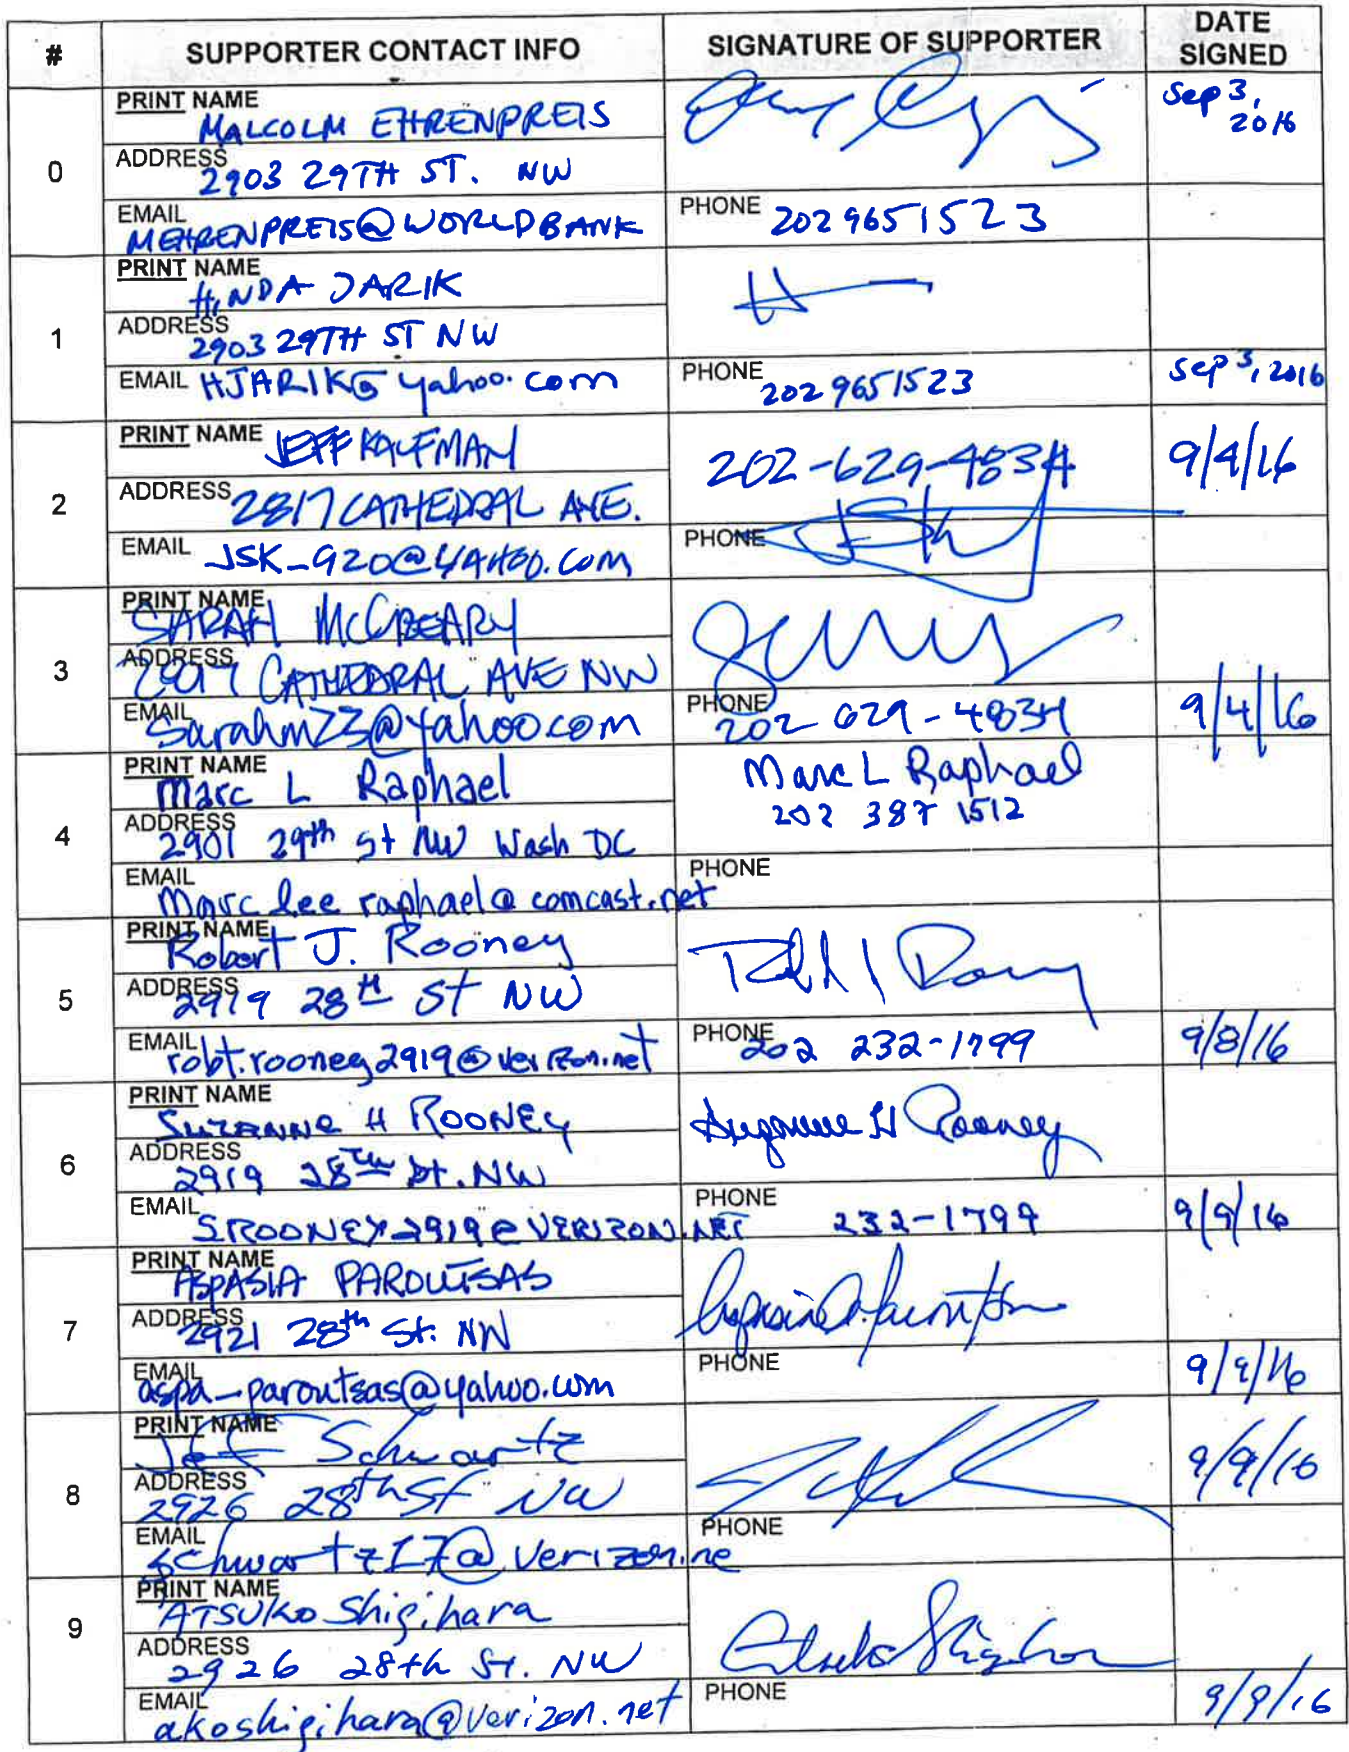 # SUPPORTER CONTACT INFO SIGNATURE OF SUPPORTER DATE SIGNED
0
PRINT NAME MALCOLM EHRENPREIS
Sep 3, 2016
ADDRESS 2903 29TH ST. NW
EMAIL MEHRENPREIS@WORLDBANK
PHONE 202 9651523
1
PRINT NAME HINDA JARIK
ADDRESS 2903 29TH ST NW
EMAIL HJARIK@yahoo.com
PHONE 202 9651523
Sep 3, 2016
2
PRINT NAME JEFF KAUFMAN
202-629-4834
9/4/16
ADDRESS 2817 CATHEDRAL AVE.
EMAIL JSK_920@YAHOO.COM
PHONE
3
PRINT NAME SARAH McCREARY
ADDRESS CATHEDRAL AVE NW
EMAIL Sarahm23@yahoo.com
PHONE 202-629-4834
9/4/16
4
PRINT NAME Marc L Raphael
Marc L Raphael
202 387 1512
ADDRESS 2901 29th St NW Wash DC
EMAIL Marc lee raphael@comcast.net
PHONE
5
PRINT NAME Robert J. Rooney
ADDRESS 2919 28th St NW
EMAIL robt.rooney2919@verizon.net
PHONE 202 232-1799
9/8/16
6
PRINT NAME SUZANNE H ROONEY
Suzanne H Rooney
ADDRESS 2919 28TH St. NW
EMAIL SROONEY2919@VERIZON.NET
PHONE 232-1799
9/9/16
7
PRINT NAME ASPASIA PAROUTSAS
ADDRESS 2921 28th St. NW
EMAIL aspa_paroutsas@yahoo.com
PHONE
9/9/16
8
PRINT NAME Jeff Schwartz
9/9/16
ADDRESS 2926 28th St NW
EMAIL schwartz17@verizon.ne
PHONE
9
PRINT NAME ATSUKO Shigihara
Atsuko Shigihara
ADDRESS 2926 28th St. NW
EMAIL akoshigihara@verizon.net
PHONE
9/9/16